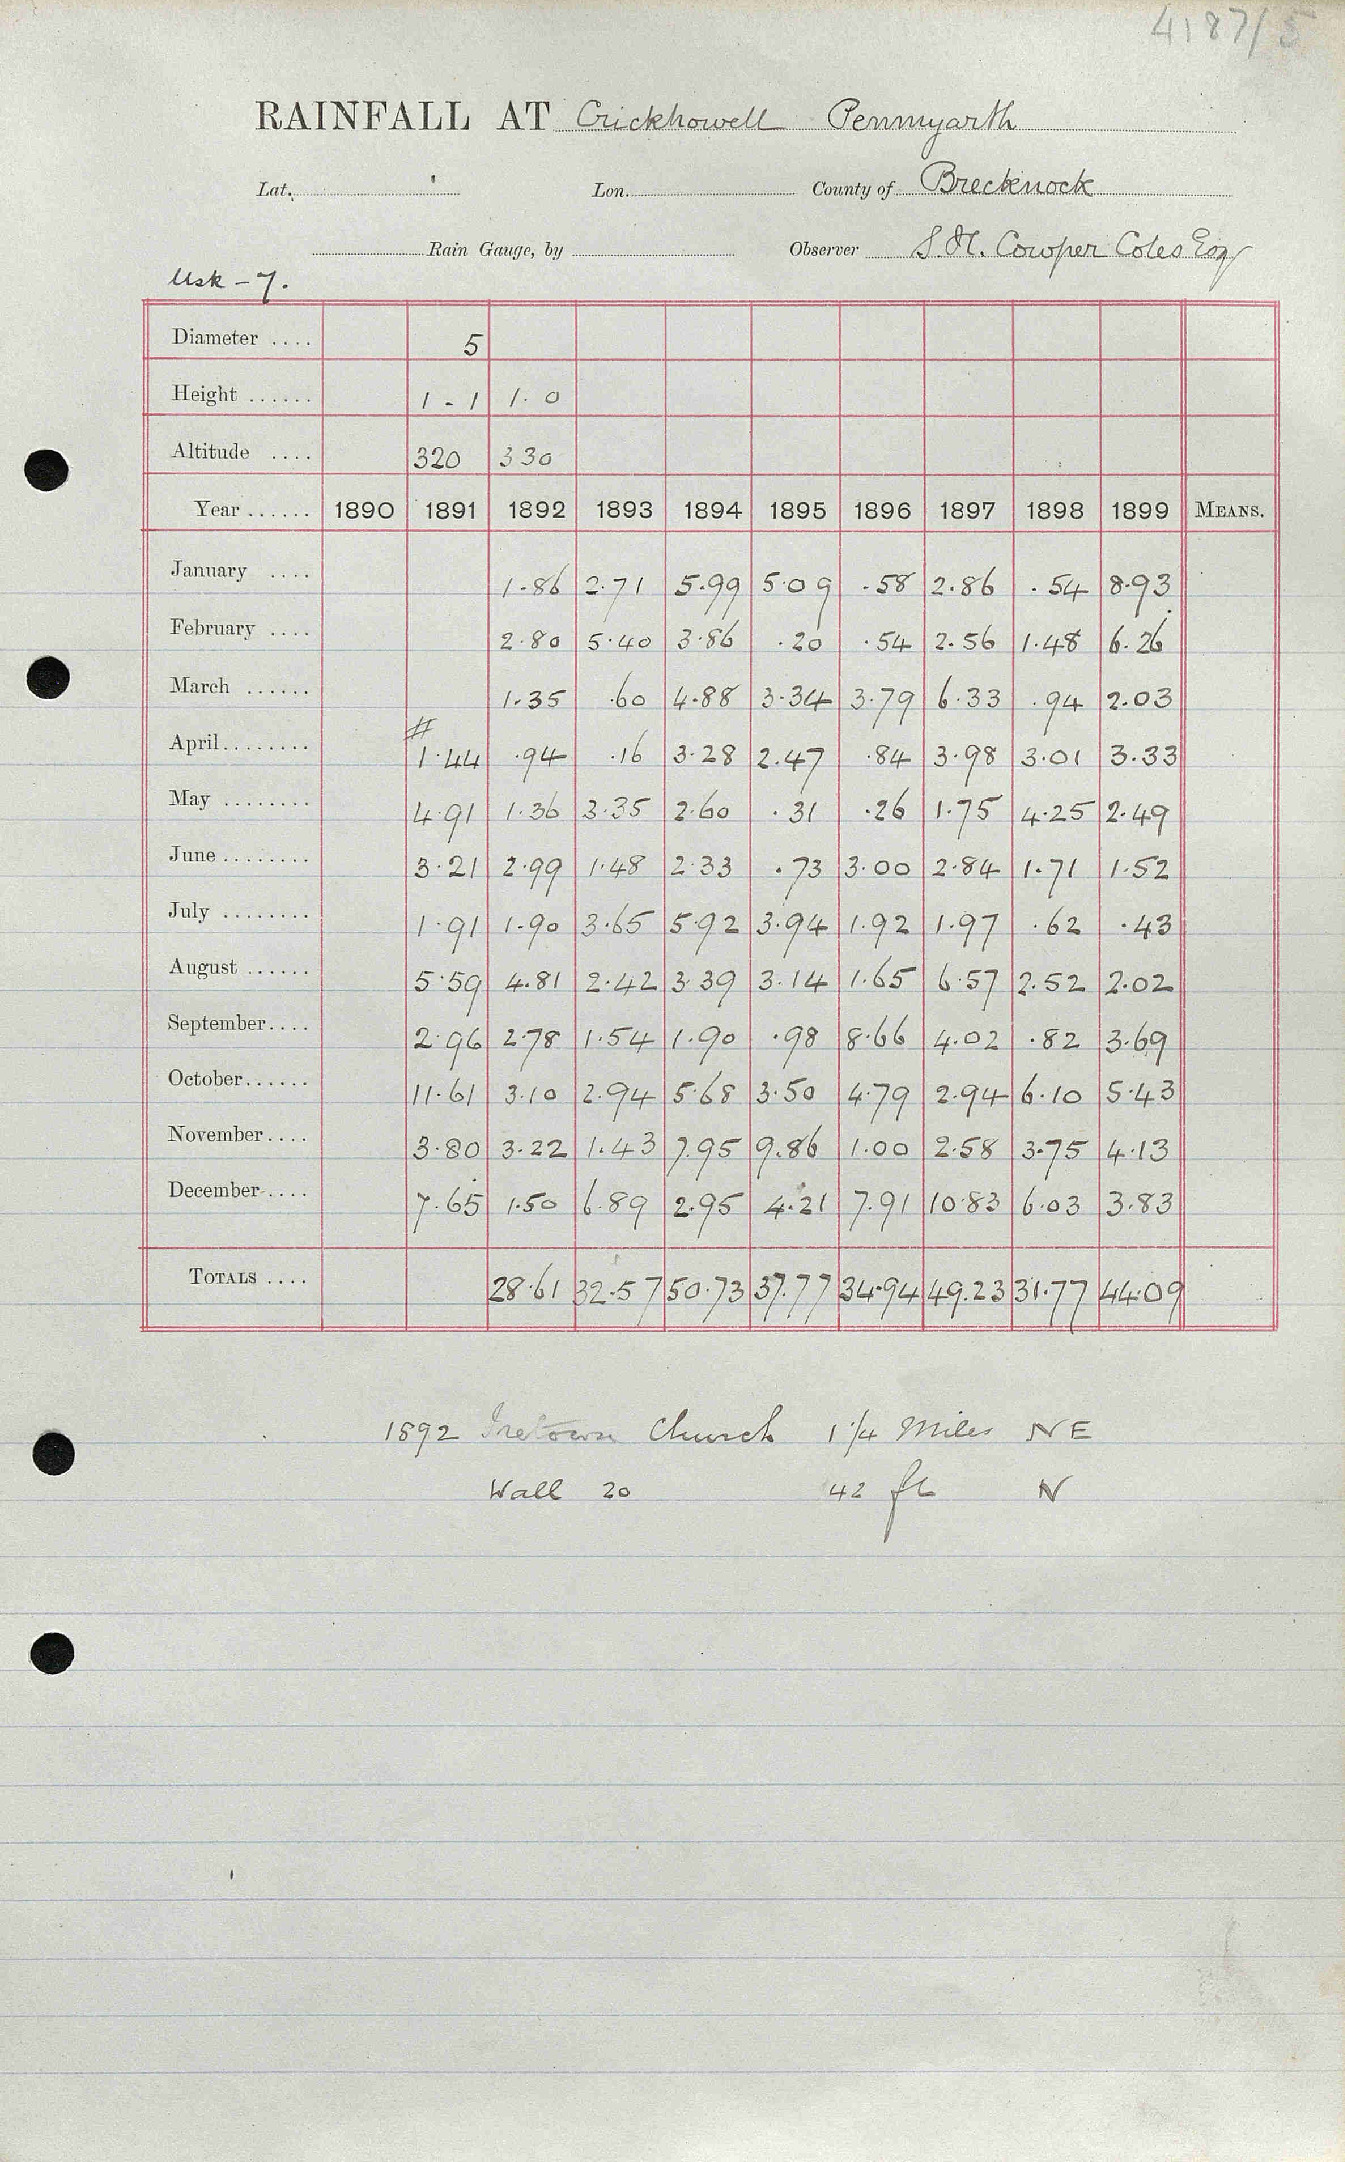 4187/5
RAINFALL AT Crickhowell Penmyarth
Lat. Lon. County of Brecknock
Rain Gauge, by Observer S. H. Cowper Coles Esq
Usk - 7.
Diameter .... 5
Height ...... 1 - 1 1. 0
Altitude .... 320 330
Year ...... 1890 1891 1892 1893 1894 1895 1896 1897 1898 1899 MEANS.
January .... 1.86 2.71 5.99 5.09 .58 2.86 .54 8.93
February .... 2.80 5.40 3.86 .20 .54 2.56 1.48 6.26
March ...... 1.35 .60 4.88 3.34 3.79 6.33 .94 2.03
#
April ........ 1.44 .94 .16 3.28 2.47 .84 3.98 3.01 3.33
May ........ 4.91 1.36 3.35 2.60 .31 .26 1.75 4.25 2.49
June ........ 3.21 2.99 1.48 2.33 .73 3.00 2.84 1.71 1.52
July ........ 1.91 1.90 3.65 5.92 3.94 1.92 1.97 .62 .43
August ...... 5.59 4.81 2.42 3.39 3.14 1.65 6.57 2.52 2.02
September .... 2.96 2.78 1.54 1.90 .98 8.66 4.02 .82 3.69
October ...... 11.61 3.10 2.94 5.68 3.50 4.79 2.94 6.10 5.43
November .... 3.80 3.22 1.43 7.95 9.86 1.00 2.58 3.75 4.13
December .... 7.65 1.50 6.89 2.95 4.21 7.91 10.83 6.03 3.83
TOTALS .... 28.61 32.57 50.73 37.77 34.94 49.23 31.77 44.09
1892 Church 1 1/4 Miles NE
Wall 20 42 ft N